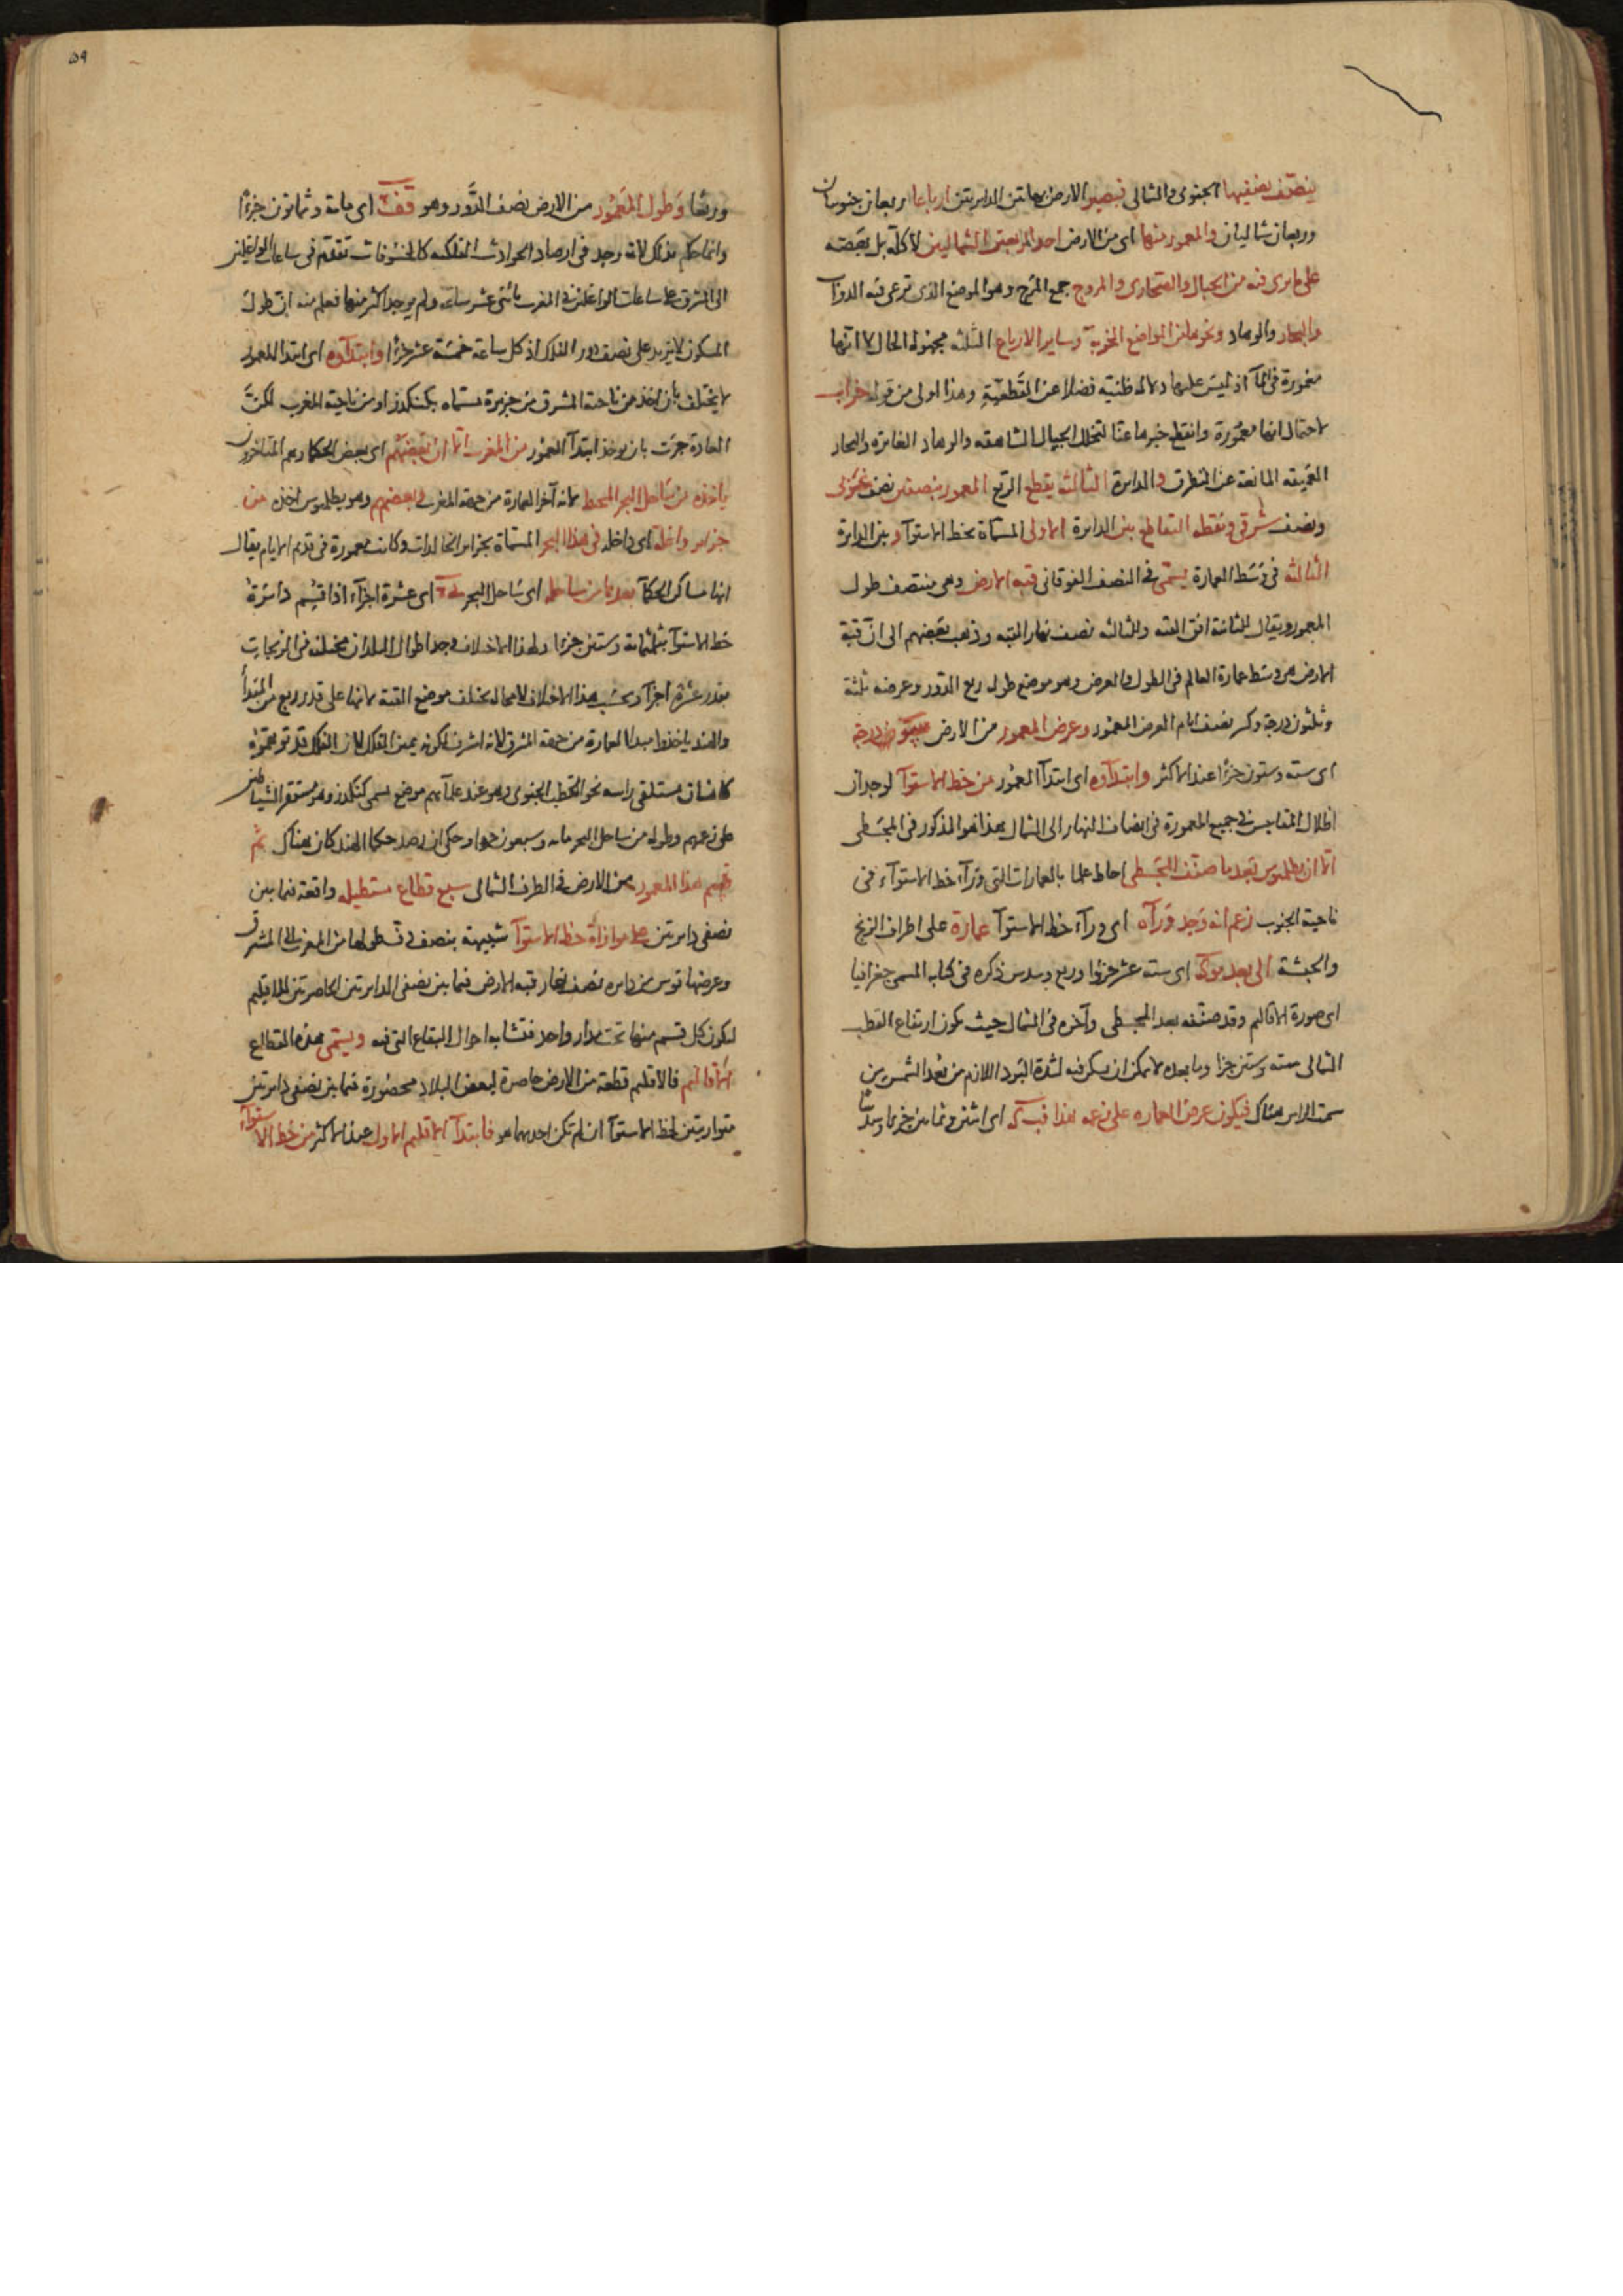 ينصّف نصفيها الجنوبى والشمالى فيصير الارض بهاتين الدايرتين ارباعا ربعان جنوبيان
وربعان شماليان والمعمور منها اى من الارض احد الربعين الشماليين لا كلّه بل بعضه
على ما يرى فيه من الجبال والصحارى والمروج جمع المرج وهو الموضع الذى ترعى فيه الدوآب
والبحار والوهاد ونحوها من المواضع الخربة وساير الارباع الثلثه مجهولة الحال لا انّها
مغمورة فى المآ اذ ليس عليها دلاله ظنيّه فضلا عن القطعيّةِ وهذا اولى من قوله خراب
لاحتمال انها معمورة وانقطع خبرها عنّا لتخلل الجبال الشاهقه والوهاد الغايره والبحار
العميقه المانعة عن التطرق والدايرة الثالثة يقطع الربع المعمور بنصفين نصف غربى
ونصف شرقى ونقطه التقاطع بين الدايرة الاولى المسمّاة بخط الاستوآ وبين الدايرة
الثالثه فى وسَط العمارة يسمّى فى النصف الفوقانى قبه الارض وهى منتصف طول
المعمور ويقال للثانية افق القبه وللثالثه نصف نهار القبه وذهب بعضهم الى انّ قبة
الارض هى وسط عمارة العالم فى الطول والعرض وهو موضع طوله ربع الدور وعرضه ثلثة
وثلثون درجة وكسر نصف تمام العرض المعمور وعرض المعمور من الارض سو درجة
اى سته وستون جزءًا عند الاكثر وابتدآوه اى ابتدآ المعمور من خط الاستوآ لوجدان
اظلال المقاييس فى جميع المعمورة فى انصاف النهار الى الشمال هذا هو المذكور فى المجسطى
الّا ان بطلميوس بَعد ما صنّف المجسطى احاط علما بالعمارات التى ورآء خط الاستوآء فى
ناحية الجنوب زعم انه وَجد وَرآه اى ورآء خط الاستوآ عمارة على اطراف الزنج
والحبشة الى بعد يوكه اى ستة عشر جزوا وربع وسدس ذكره فى كتابه المسمى جغرافيا
اى صورة الاقاليم وقد صنّفه بعد المجسطى وآخره فى الشمال حيث يكون ارتفاع القطب
الشمالى سته وستين جزا وما بعده لا يمكن ان يسكن فيه لشدة البَرد اللازم من بُعد الشمس من
سمت الراس هناك فيكون عرض العماره على زعمه هذا فب كه اى اثنين وثمانين جزءا وسدسًا
٥٩
وربعًا وَطول المَعمُور من الارض نصف الدَّور وهو قف اى ماية وثمانون جزءًا
وانما حكم بذلك لانه وجد فى ارصاد الحوادث الفلكيه كالخسُوفات تقدّم فى ساعات الواغلين
الى المشرق على ساعات الواغلين فى المغرب باثنى عشر ساعه ولم يوجد اكثر منها فعلم منه انّ طولَ
المسكون لا يزيد على نصف دور الفلك اذ كل ساعة خمسَة عشر جزءًا وابتدآوه اى ابتدا المعمور
لا يختلف بان اخذ من ناحية المشرق من جزيرة مسماه بكنكدز او من ناحية المغرب لكنّ
العادة جرَت بان يوخذ ابتدآ المعمُور من المغرب الّا انّ بَعضَهُم اى بعض الحكما وهم المتاخرون
ياخذه من سَاحل البحر المحيط لانه آخر العمارة من جهة المغرب وبعضهم وهو بطلميوس اخذه من
جزاير واغلة اى داخلة فى هذا البحر المسمّاة بجزاير الخالدات وكانت معمورة فى قديم الايام يقال
انها مساكن الحكمآ بعدها من ساحله اى سَاحل البحر ى اى عشرة اجزآء اذا قسّم دائرةُ
خط الاستوآ بثلثماية وستين جزءا ولهذا الاختلاف وجد اطوال البلدان مختلفة فى الزيجات
بقدر عشرة اجزآ وبحسَب هذا الاختلاف لا محاله يختلف موضع القبة لانها على قدر ربع من المبدأ
والهند ياخذوا مبدا العمارة من جهة المشرق لانه اشرف لكونه يمين الفلك لان الفلك قد توهموّهُ
كانسَان مستلقى راسه نحو القطب الجنوبى وهو عند علمآيهم موضع يسمى كنكدز وهو مستقر الشياطين
على زعمهم وطوله من ساحل البحر مايه وسبعون جزوا وحكى ان رصد حكما الهند كان هناك ثم
قسم هذا المعمور من الارض فى الطرف الشمالى سبع قطاع مستطيله واقعة فيما بين
نصفى دايرتين على موازاة خط الاستوآ شبيهة بنصف دف طولها من المغرب الى المشرق
وعرضها قوس من دايره نصف نهار قبه الارض فيما بين نصفى الدايرتين الحاصرتين للاقليم
ليكون كل قسم منها تحت مدار واحد فتتشابه احوال البقاع التى فيه ويسَمّى هذه القطاع
الاقاليم فالاقليم قطعة من الارض حاصرة لبعض البلاد محصُورة فيما بين نصفى دايرتين
متوازيتين لخط الاستوآ ان لم تكن احديهما هو فابتدآ الاقليم الاول عند الاكثر من خط الاستوآء